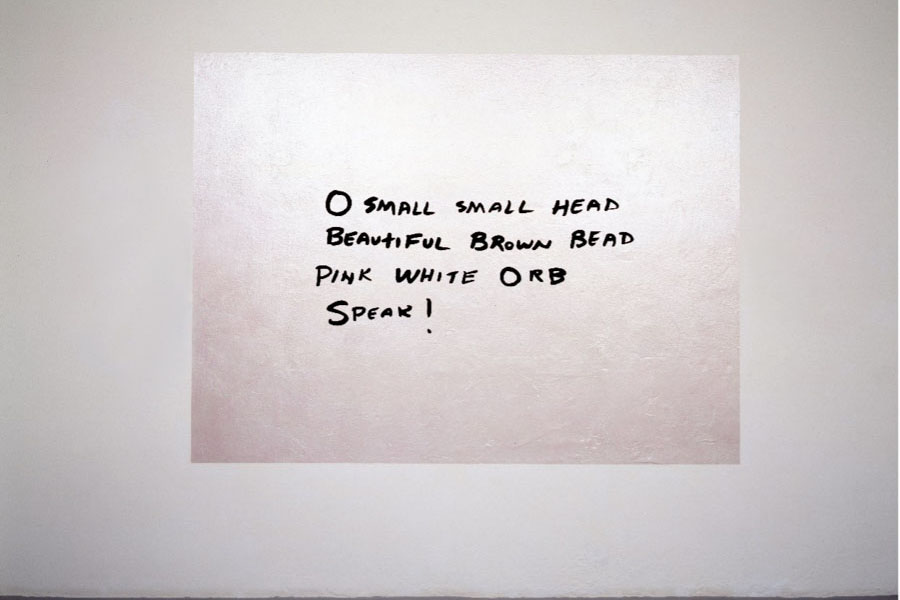 O SMALL SMALL HEAD
BEAUTIFUL BROWN BEAD
PINK WHITE ORB
SPEAK!